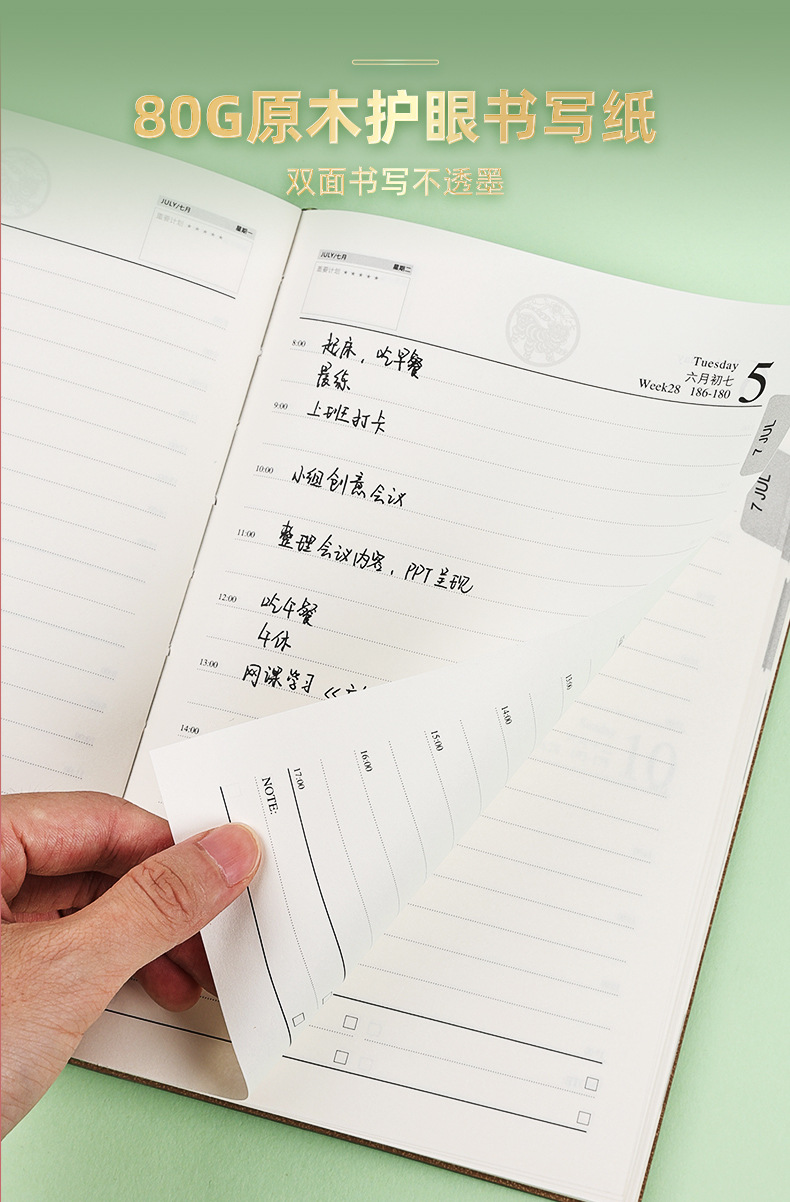 80G原木护眼书写纸
双面书写不透墨
JULY/七月 星期一
重要计划 ★★★★★
JULY/七月 星期二
重要计划 ★★★★★
Tuesday
六月初七
Week28 186-180
5
7 JUL
7 JUL
8:00 起床,吃早餐
晨练
9:00 上班打卡
10:00 小组创意会议
11:00 整理会议内容,PPT呈现
12:00 吃午餐
午休
13:00 网课学习《
14:00
13:00
14:00
15:00
16:00
17:00
NOTE:
10